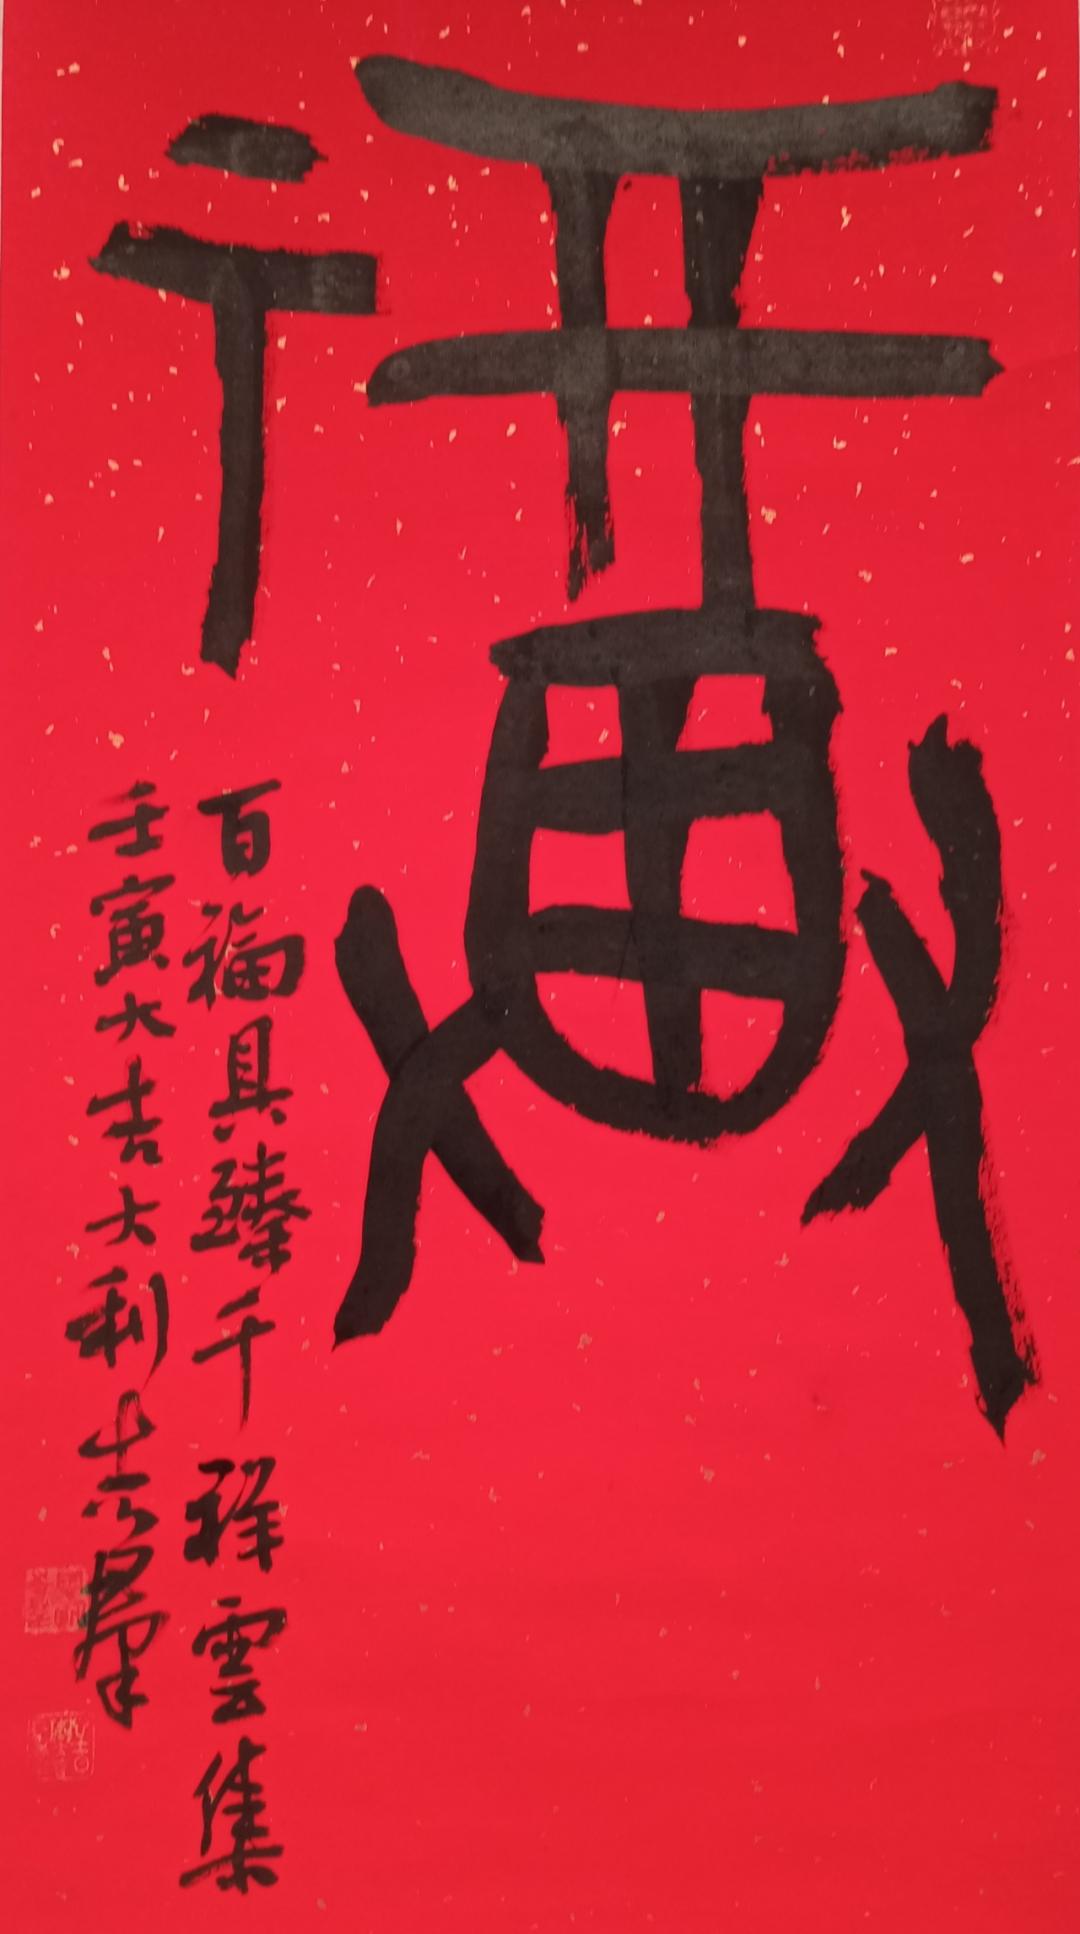 福
百福具臻千祥雲集
壬寅大吉大利志群